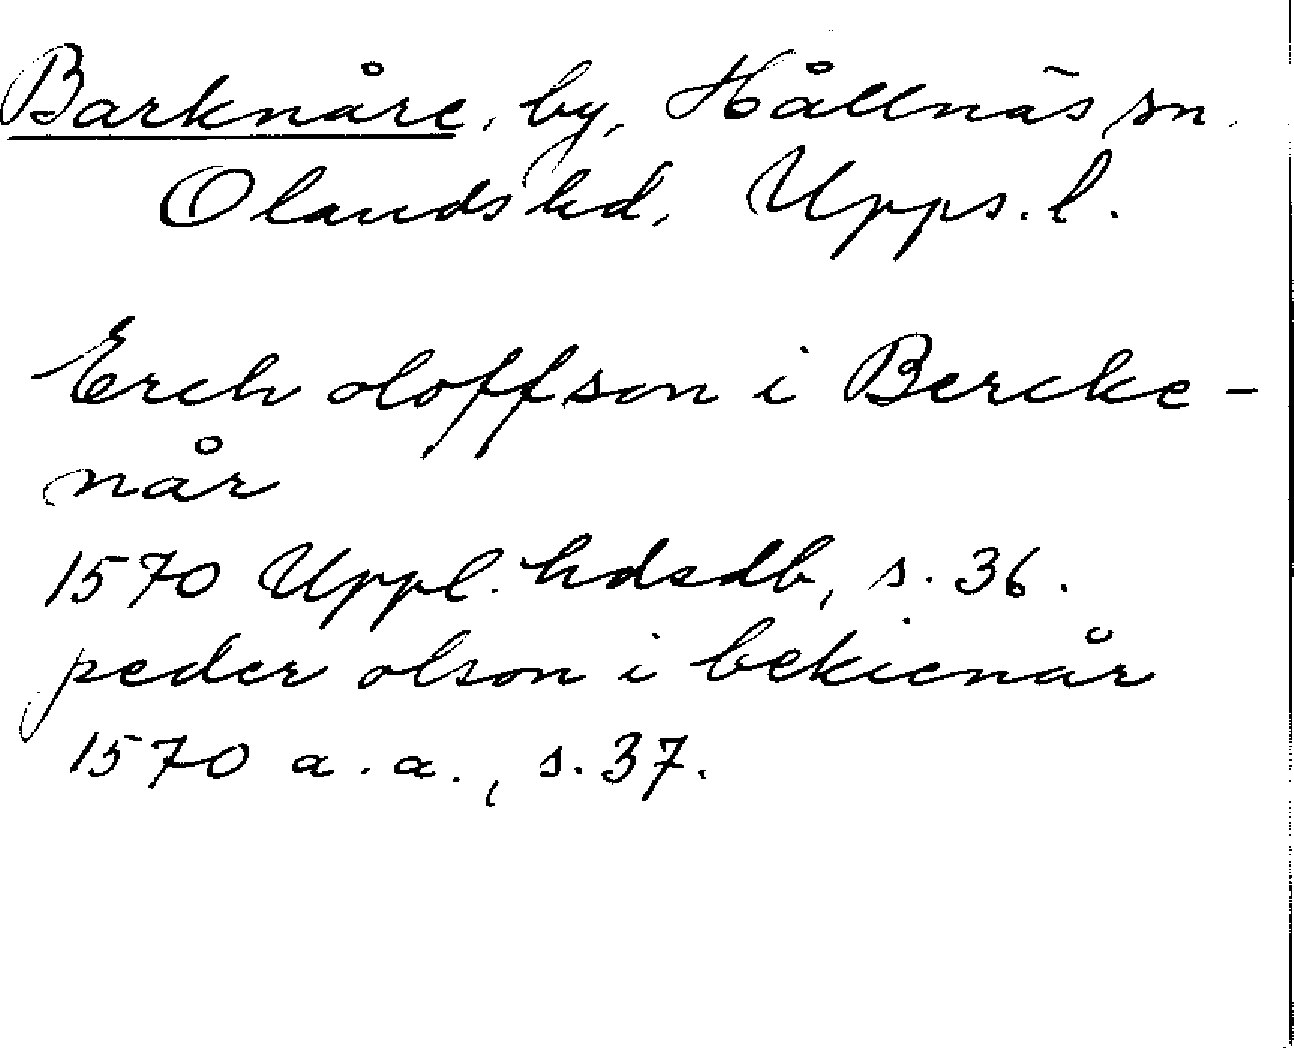 Barknåre, by, Hållnäs sn.
Olands hd, Upps. l.
Erch oloffson i Bercke-
når
1570 Uppl. hdsdb, s. 36.
peder olson i bekienår
1570 a. a., s. 37.